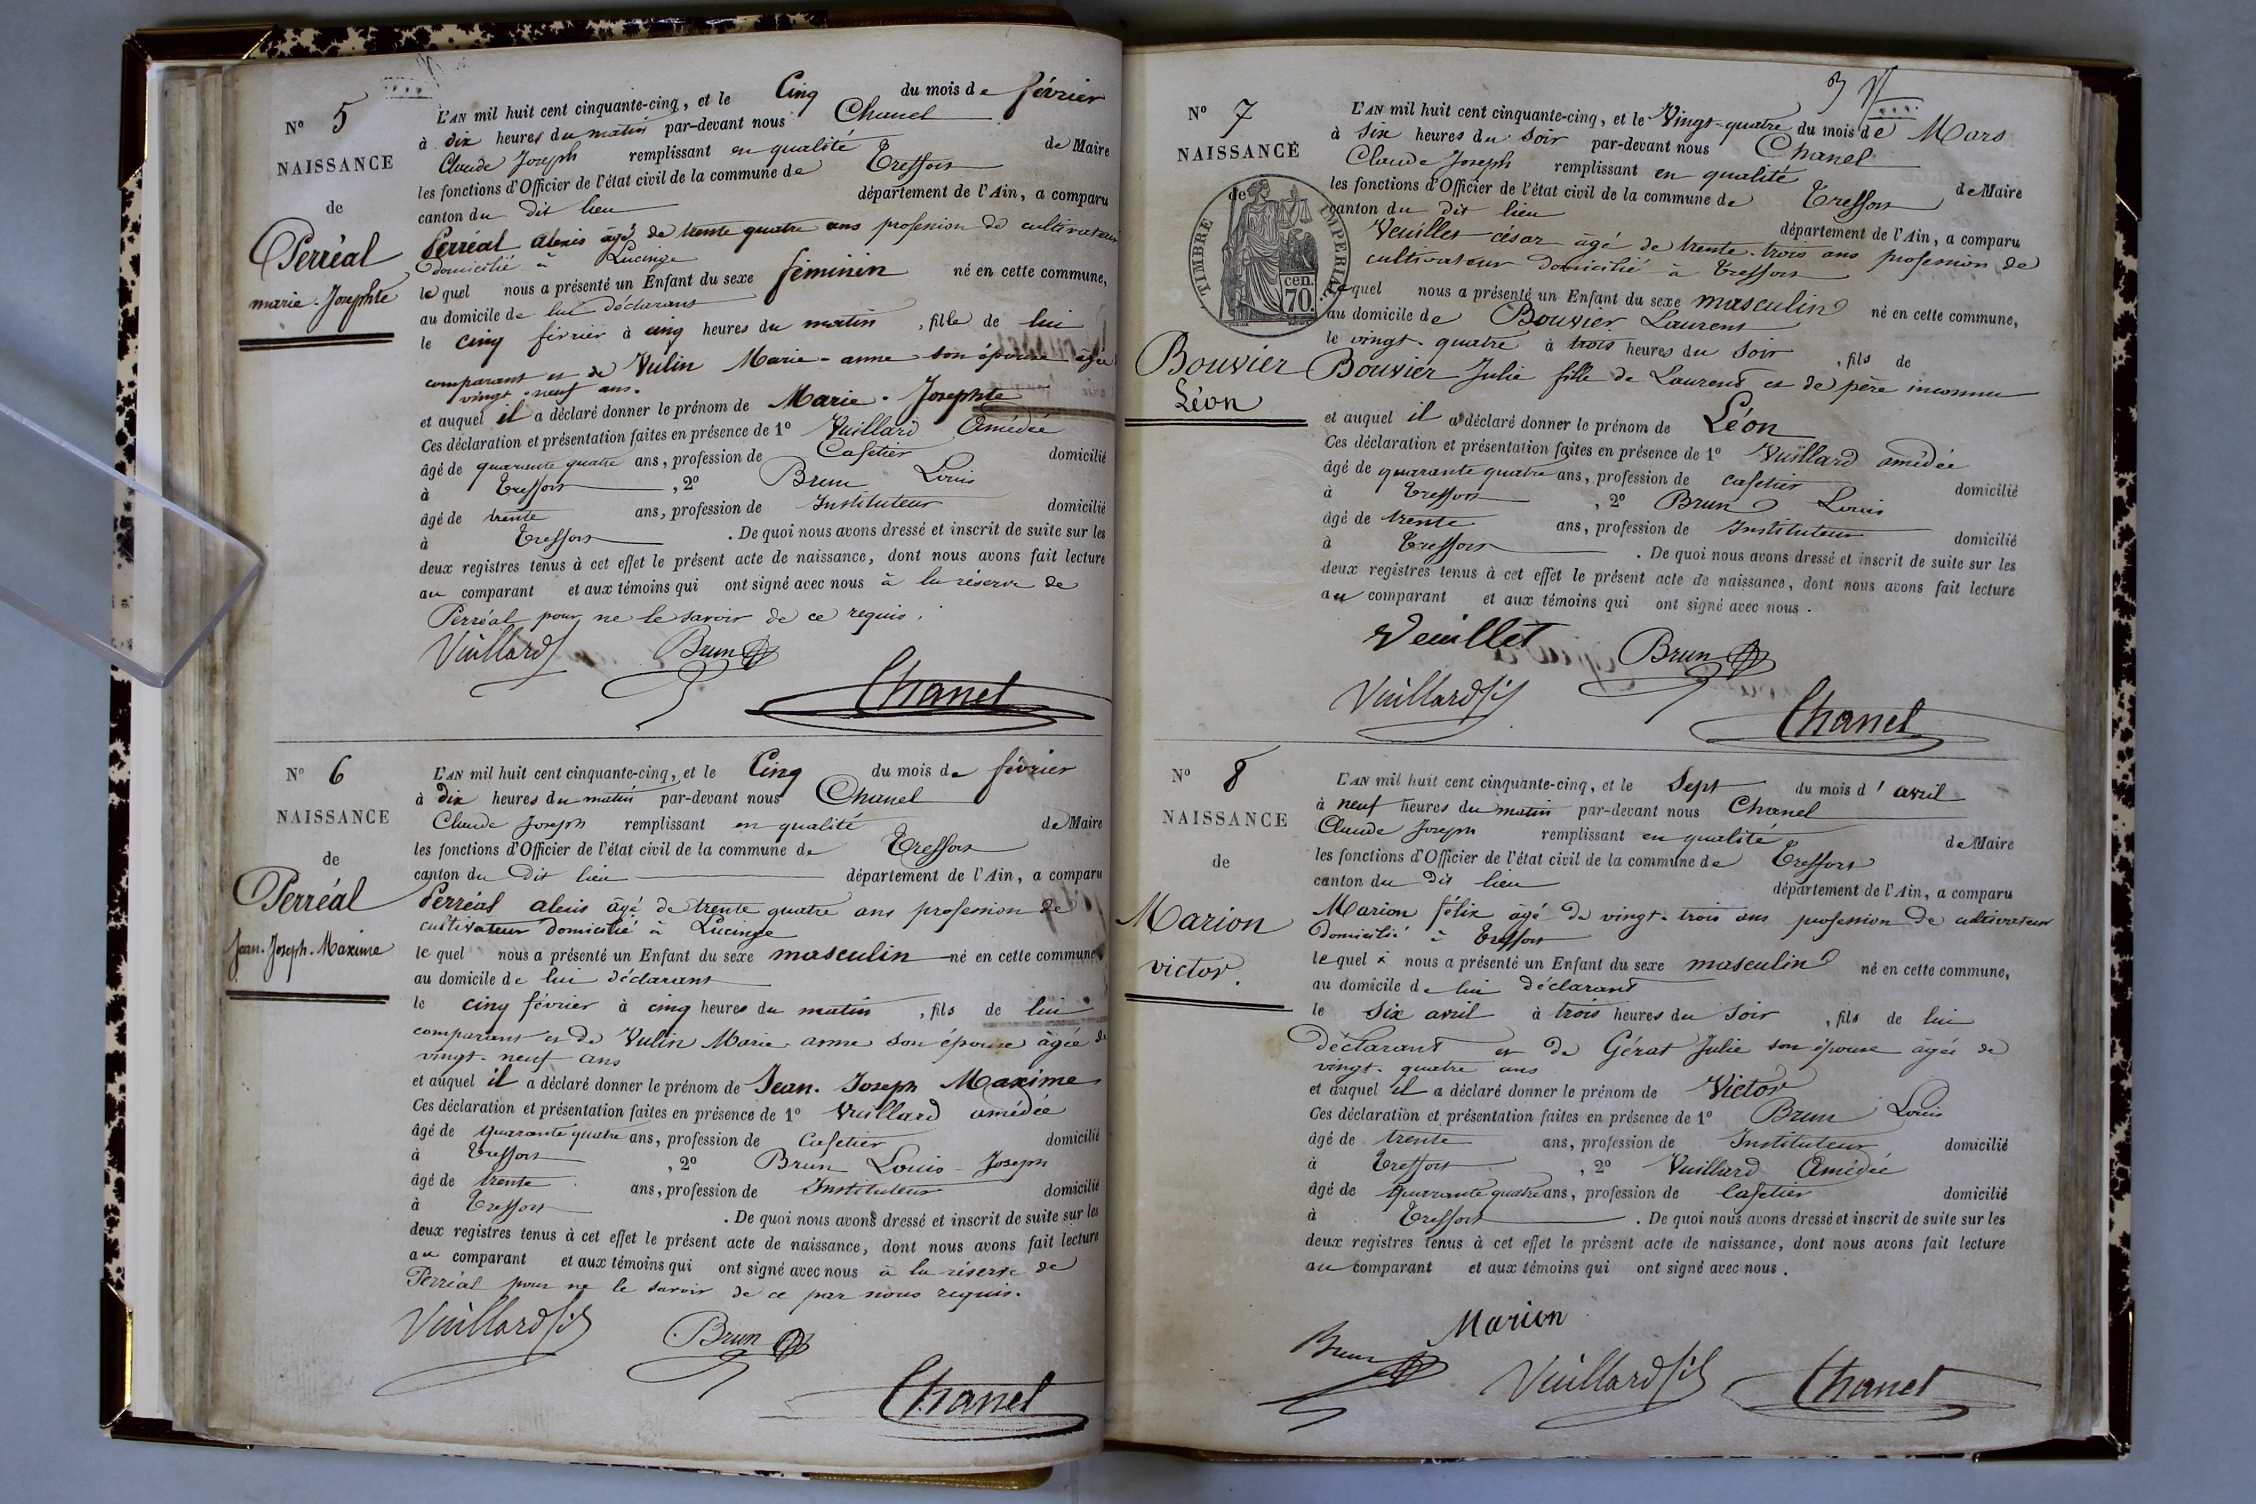 N° 5
NAISSANCE
de
Perréal
marie-Josephte
L'AN mil huit cent cinquante-cinq, et le Cinq du mois de février
à dix heures du matin par-devant nous Chanel
Claude Joseph remplissant en qualité de Maire
les fonctions d'Officier de l'état civil de la commune de Treffort
canton du dit lieu département de l'Ain, a comparu
Perréal alexis âgé de trente quatre ans profession de cultivateur
domicilié à Lucinge
lequel nous a présenté un Enfant du sexe féminin né en cette commune,
au domicile de lui déclarant
le cinq février à cinq heures du matin, fille de lui
comparant et de Vulin Marie-anne son épouse âgée
vingt-neuf ans.
et auquel il a déclaré donner le prénom de Marie-Josephte
Ces déclaration et présentation faites en présence de 1° Vuillard Amédée
âgé de quarante quatre ans, profession de Cafetier domicilié
à Treffort, 2° Brun Louis
âgé de trente ans, profession de Instituteur domicilié
à Treffort. De quoi nous avons dressé et inscrit de suite sur les
deux registres tenus à cet effet le présent acte de naissance, dont nous avons fait lecture
au comparant et aux témoins qui ont signé avec nous à la réserve de
Perréal pour ne le savoir de ce requis.
Vuillard Brun
Chanel
N° 6
NAISSANCE
de
Perréal
Jean-Joseph-Maxime
L'AN mil huit cent cinquante-cinq, et le Cinq du mois de février
à Dix heures du matin par-devant nous Chanel
Claude Joseph remplissant en qualité de Maire
les fonctions d'Officier de l'état civil de la commune de Treffort
canton du dit lieu département de l'Ain, a comparu
Perréal alexis âgé de trente quatre ans profession de
cultivateur domicilié à Lucinge
lequel nous a présenté un Enfant du sexe masculin né en cette commune,
au domicile de lui déclarant
le cinq février à cinq heures du matin, fils de lui
comparant et de Vulin Marie anne son épouse âgée de
vingt-neuf ans
et auquel il a déclaré donner le prénom de Jean-Joseph Maxime
Ces déclaration et présentation faites en présence de 1° Vuillard amédée
âgé de quarante quatre ans, profession de Cafetier domicilié
à Treffort, 2° Brun Louis-Joseph
âgé de trente ans, profession de Instituteur domicilié
à Treffort. De quoi nous avons dressé et inscrit de suite sur les
deux registres tenus à cet effet le présent acte de naissance, dont nous avons fait lecture
au comparant et aux témoins qui ont signé avec nous à la réserve de
Perréal pour ne le savoir de ce par nous requis.
Vuillard fils Brun
Chanel
3
N° 7
NAISSANCE
de
TIMBRE IMPERIAL
cen.
70.
Bouvier
Léon
L'AN mil huit cent cinquante-cinq, et le Vingt-quatre du mois de Mars
à Six heures du Soir par-devant nous Chanel
Claude Joseph remplissant en qualité de Maire
les fonctions d'Officier de l'état civil de la commune de Treffort
canton du dit lieu département de l'Ain, a comparu
Veuillet césar âgé de trente-trois ans profession de
cultivateur domicilié à Treffort
lequel nous a présenté un Enfant du sexe masculin né en cette commune,
au domicile de Bouvier Laurent
le vingt-quatre à trois heures du Soir, fils de
Bouvier Julie fille de Laurent et de père inconnu
et auquel il a déclaré donner le prénom de Léon
Ces déclaration et présentation faites en présence de 1° Vuillard amédée
âgé de quarante quatre ans, profession de cafetier domicilié
à Treffort, 2° Brun Louis
âgé de trente ans, profession de Instituteur domicilié
à Treffort. De quoi nous avons dressé et inscrit de suite sur les
deux registres tenus à cet effet le présent acte de naissance, dont nous avons fait lecture
au comparant et aux témoins qui ont signé avec nous.
Veuillet Brun
Vuillard fils
Chanel
N° 8
NAISSANCE
de
Marion
victor.
L'AN mil huit cent cinquante-cinq, et le Sept du mois d'avril
à neuf heures du matin par-devant nous Chanel
Claude Joseph remplissant en qualité de Maire
les fonctions d'Officier de l'état civil de la commune de Treffort
canton du dit lieu département de l'Ain, a comparu
Marion félix âgé de vingt-trois ans profession de cultivateur
domicilié à Treffort
lequel nous a présenté un Enfant du sexe masculin né en cette commune,
au domicile de lui déclarant
le six avril à trois heures du Soir, fils de lui
déclarant et de Gérat Julie son épouse âgée de
vingt-quatre ans
et auquel il a déclaré donner le prénom de Victor
Ces déclaration et présentation faites en présence de 1° Brun Louis
âgé de trente ans, profession de Instituteur domicilié
à Treffort, 2° Vuillard Amédée
âgé de quarante quatre ans, profession de Cafetier domicilié
à Treffort. De quoi nous avons dressé et inscrit de suite sur les
deux registres tenus à cet effet le présent acte de naissance, dont nous avons fait lecture
au comparant et aux témoins qui ont signé avec nous.
Marion
Brun Vuillard fils Chanel